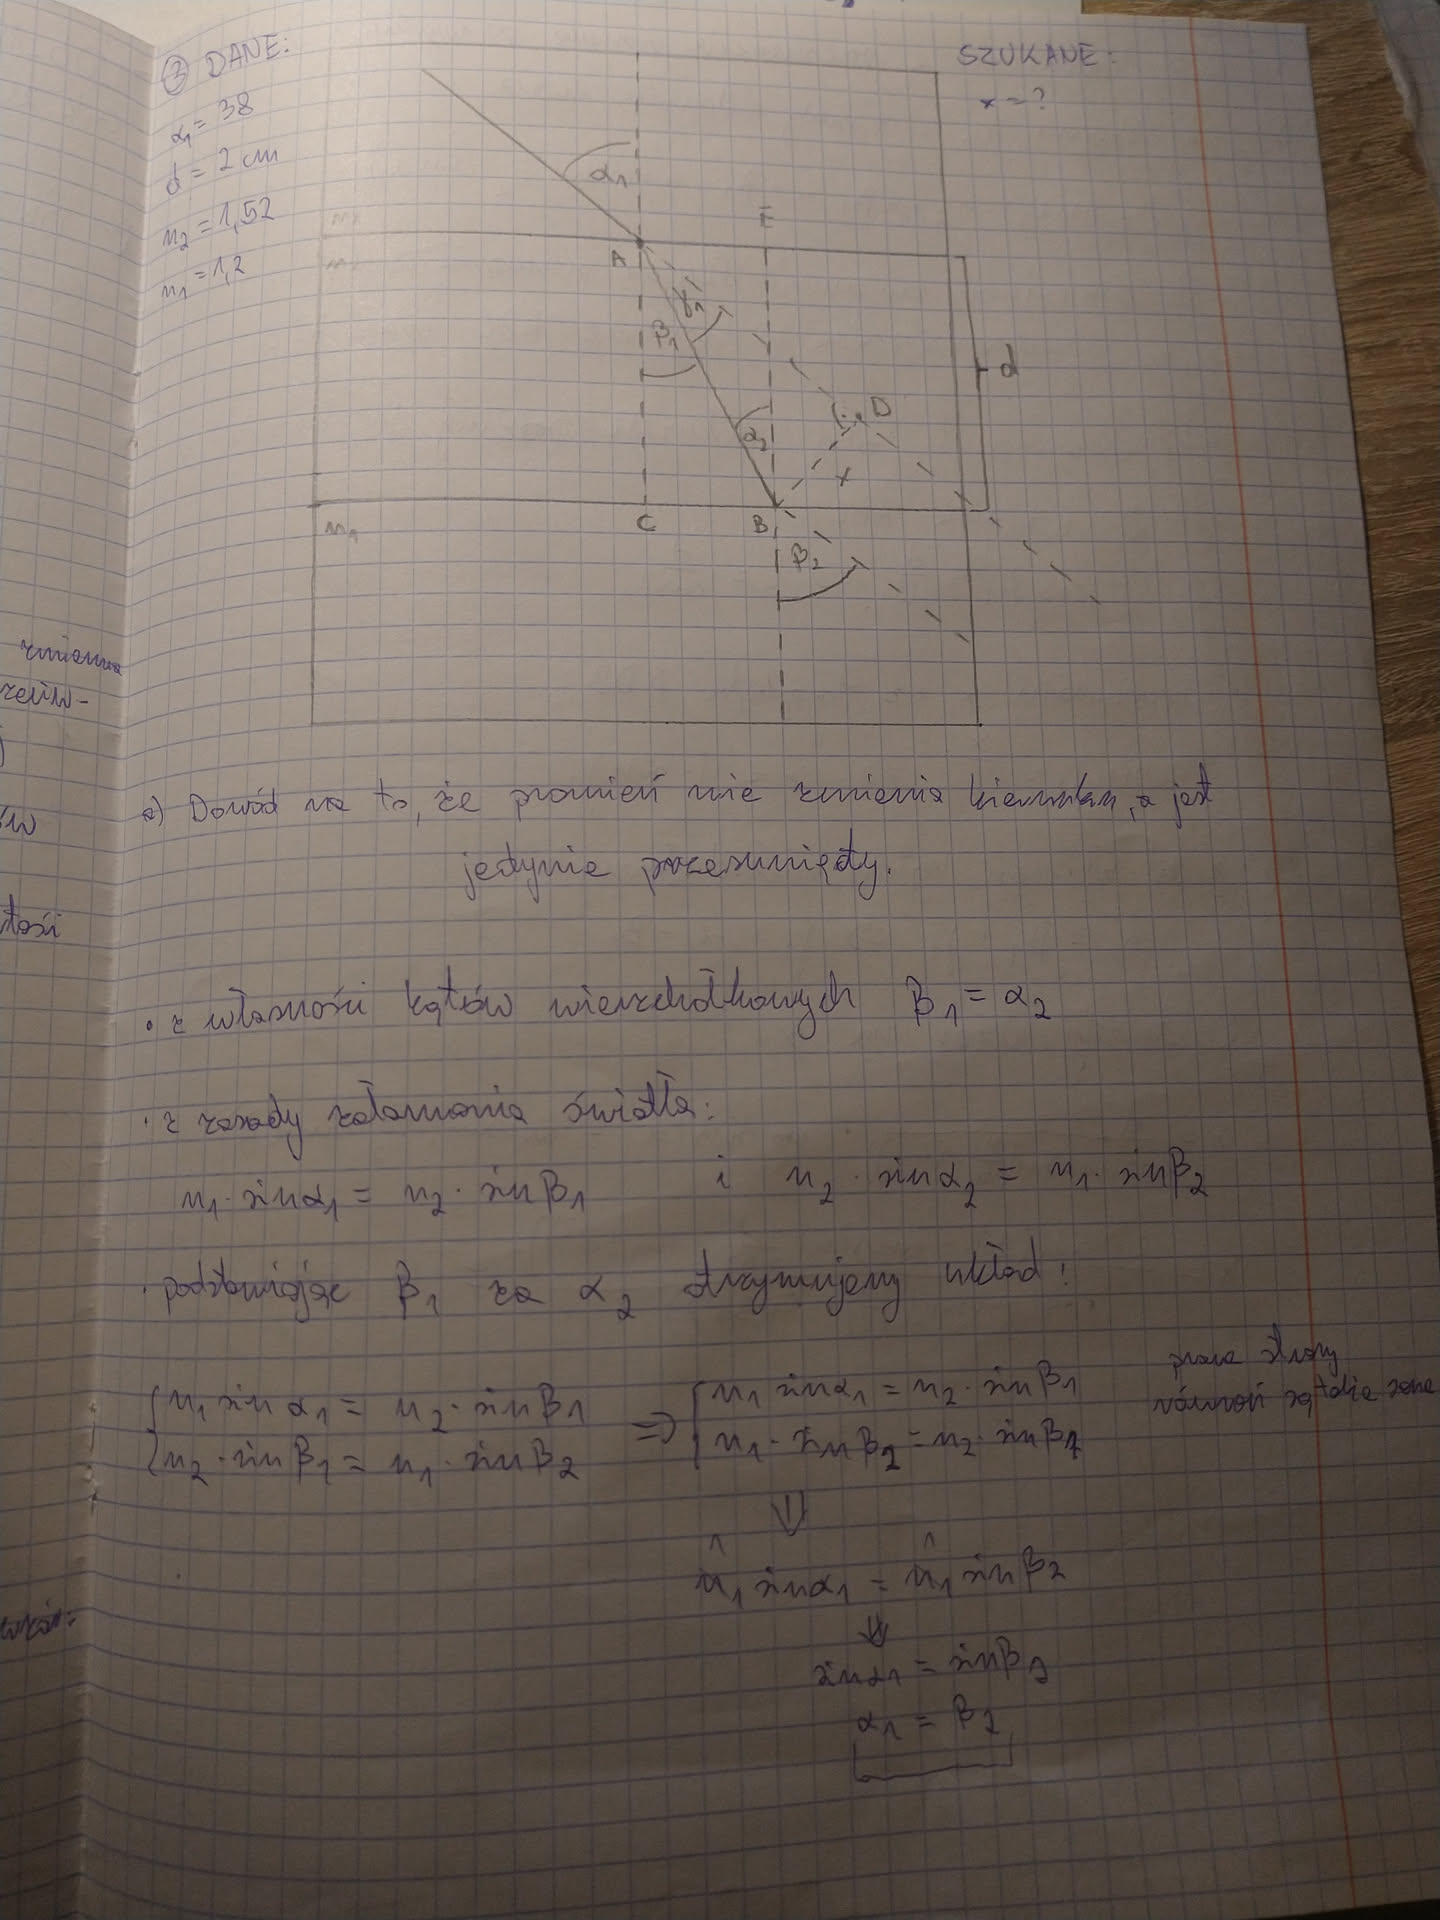 ③ DANE:
α₁ = 38
d = 2 cm
n₂ = 1,52
n₁ = 1,2
SZUKANE:
x = ?
α₁
E
A
γ₁
β₁
d
D
α₂
x
n₁
C
B
β₂
zmienia
a) Dowód na to, że promień nie zmienia kierunku, a jest
jedynie przesunięty.
• z własności kątów wierzchołkowych β₁ = α₂
• z zasady załamania światła:
n₁ · sinα₁ = n₂ · sinβ₁ i n₂ · sinα₂ = n₁ · sinβ₂
• podstawiając β₁ za α₂ otrzymujemy układ:
{n₁ sinα₁ = n₂ · sinβ₁ => {n₁ sinα₁ = n₂ · sinβ₁
{n₂ · sinβ₁ = n₁ · sinβ₂ {n₁ · sinβ₂ = n₂ · sinβ₁
prawe strony
równań są takie same
⇓
n₁ sinα₁ = n₁ sinβ₂
⇓
sinα₁ = sinβ₂
α₁ = β₂